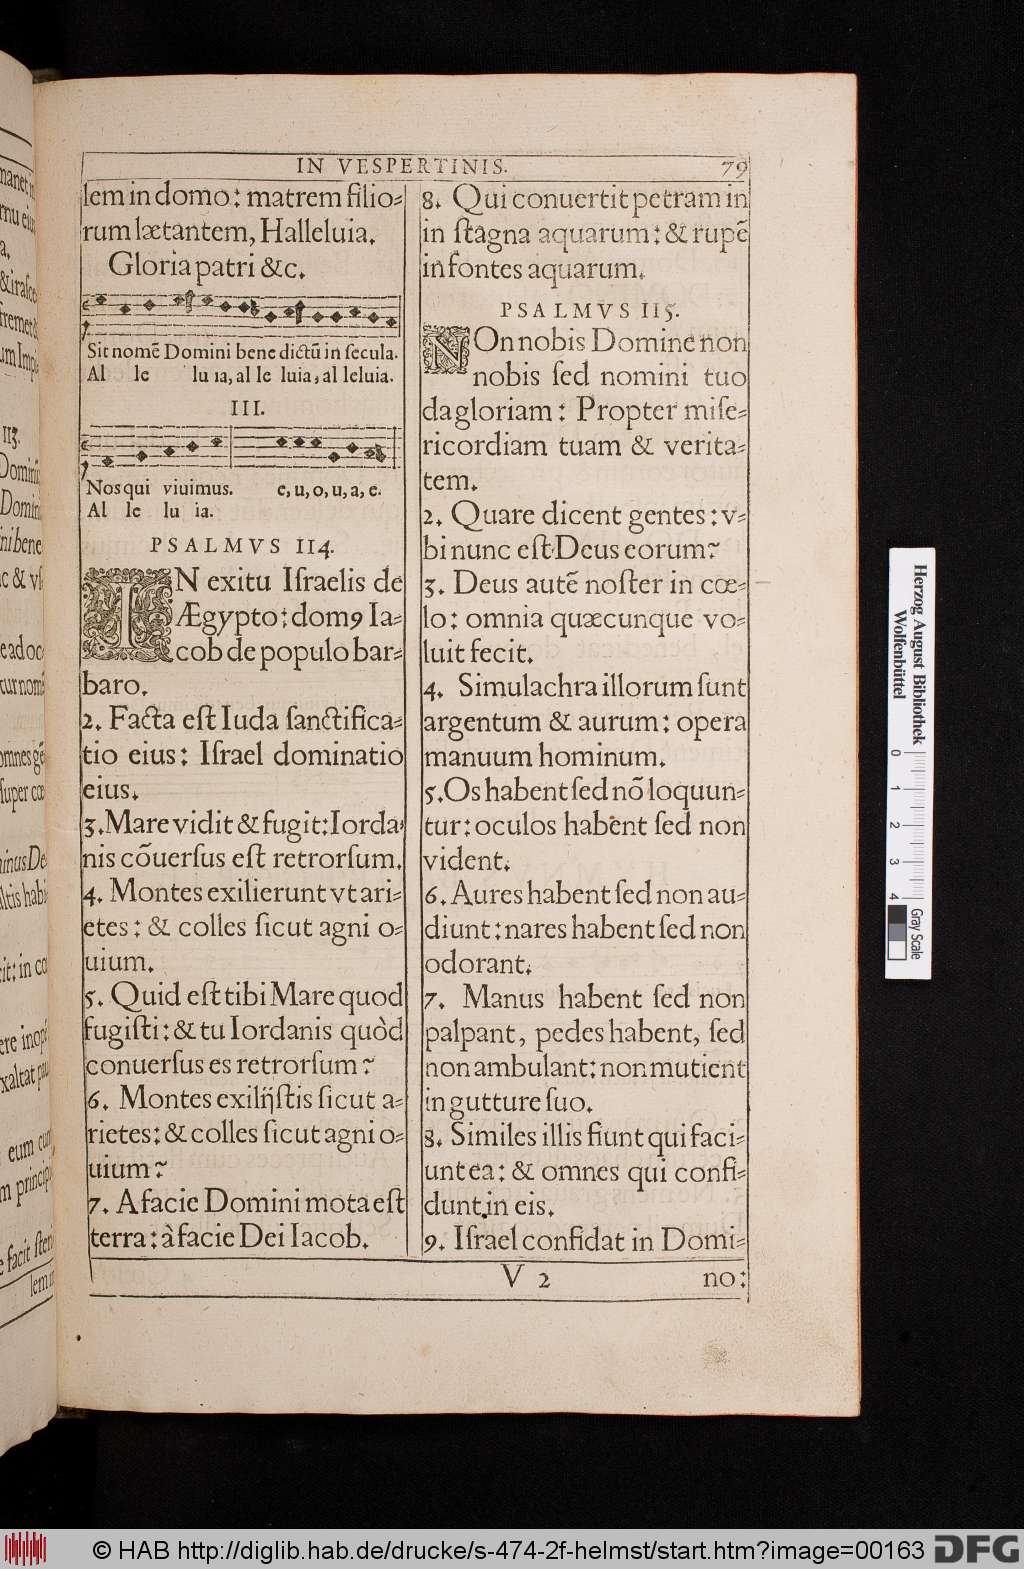 IN VESPERTINIS. 79
lem in domo: matrem filio-
rum lætantem, Halleluia.
Gloria patri &c.
Sit nomē Domini bene dictū in secula.
Al le lu ia, al le luia, al leluia.
III.
Nos qui viuimus. e, u, o, u, a, e.
Al le lu ia.
PSALMVS 114.
IN exitu Iſraelis de
Ægypto: domꝰ Ia-
cob de populo bar-
baro.
2. Facta eſt Iuda ſanctifica-
tio eius: Iſrael dominatio
eius.
3. Mare vidit & fugit: Iorda-
nis cōuerſus eſt retrorſum.
4. Montes exilierunt vt ari-
etes: & colles ſicut agni o-
uium.
5. Quid eſt tibi Mare quod
fugiſti: & tu Iordanis quòd
conuerſus es retrorſum?
6. Montes exilijſtis ſicut a-
rietes: & colles ſicut agni o-
uium?
7. A facie Domini mota eſt
terra: à facie Dei Iacob.
8. Qui conuertit petram in
in ſtagna aquarum: & rupē
in fontes aquarum.
PSALMVS 115.
NOn nobis Domine non
nobis ſed nomini tuo
da gloriam: Propter miſe-
ricordiam tuam & verita-
tem.
2. Quare dicent gentes: v-
bi nunc eſt Deus eorum?
3. Deus autē noſter in cœ-
lo: omnia quæcunque vo-
luit fecit.
4. Simulachra illorum ſunt
argentum & aurum: opera
manuum hominum.
5. Os habent ſed nō loquun-
tur: oculos habent ſed non
vident.
6. Aures habent ſed non au-
diunt: nares habent ſed non
odorant.
7. Manus habent ſed non
palpant, pedes habent, ſed
non ambulant: non mutient
in gutture ſuo.
8. Similes illis fiunt qui faci-
unt ea: & omnes qui confi-
dunt in eis.
9. Iſrael confidat in Domi-
V 2 no:
Herzog August Bibliothek
Wolfenbüttel
0 1 2 3 4
Gray Scale
© HAB http://diglib.hab.de/drucke/s-474-2f-helmst/start.htm?image=00163 DFG